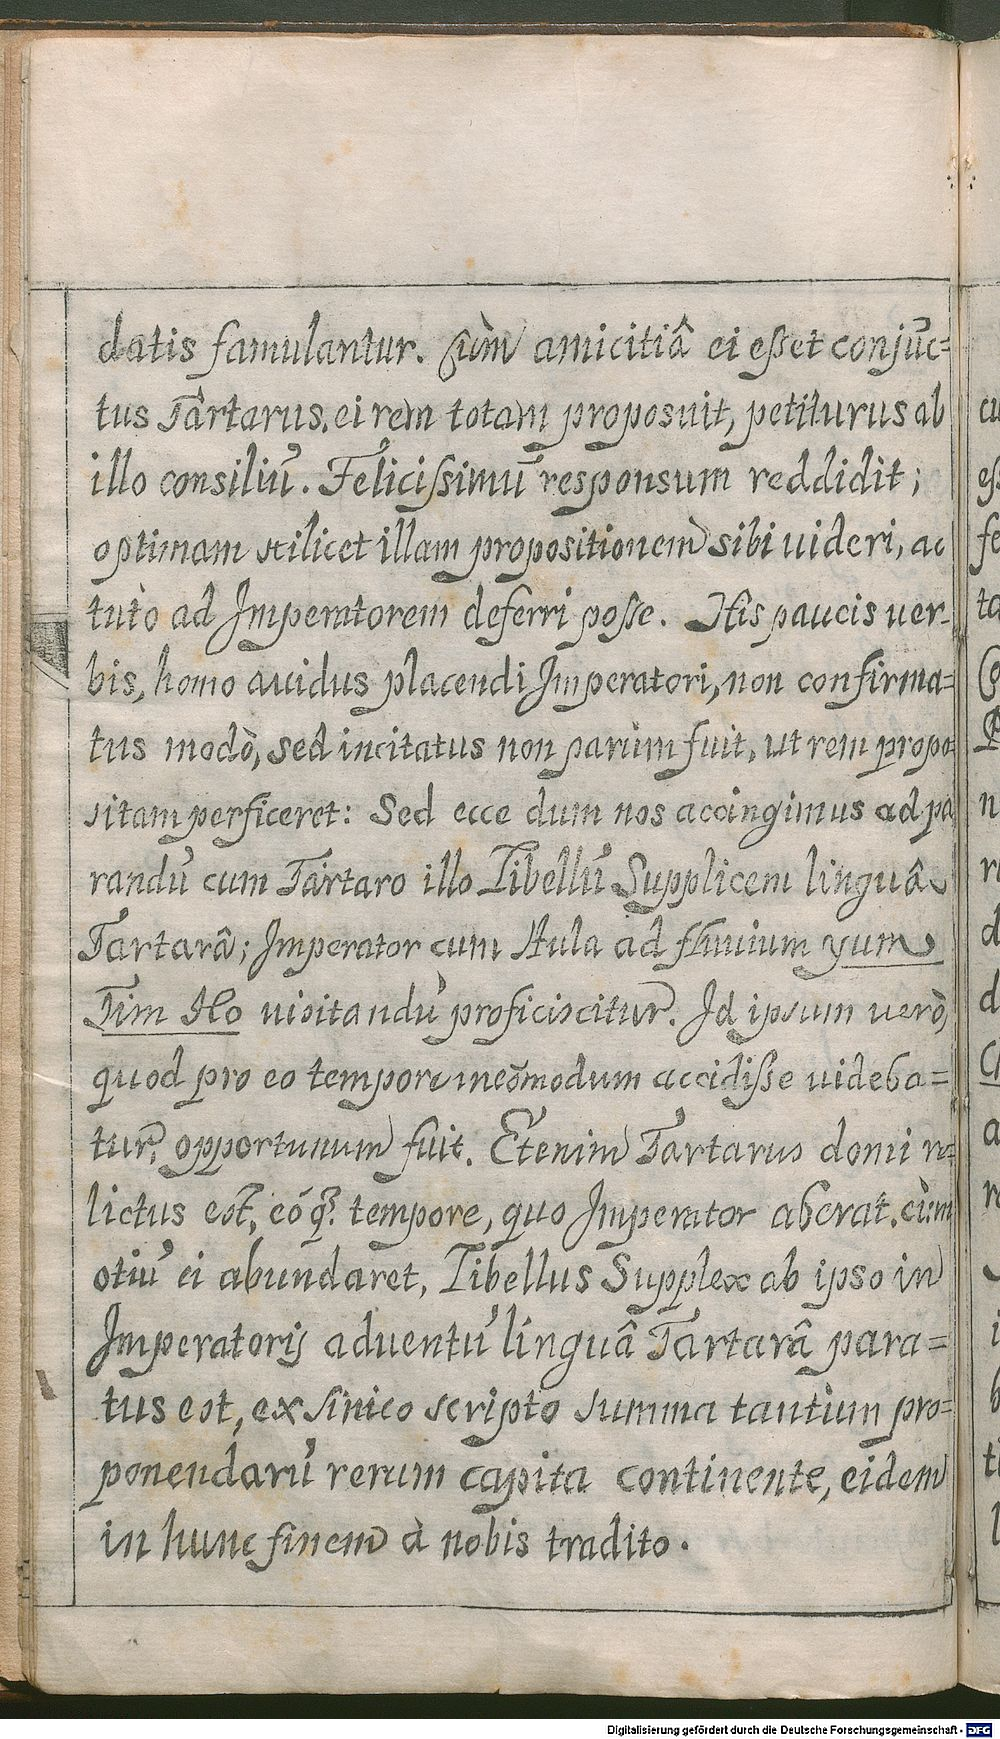 datis famulantur. Cùm amicitiâ ei eſset conjūc=
tus Tartarus, ei rem totam proposuit, petiturus ab
illo consiliū. Felicissimū responsum reddidit;
optimam scilicet illam propositionem sibi uideri, ac
tutò ad Imperatorem deferri poſse. His paucis uer-
bis, homo auidus placendi Imperatori, non confirma=
tus modò, sed incitatus non parùm fuit, ut rem propo=
sitam perficeret: Sed ecce dum nos accingimus ad pa
randū cum Tartaro illo Libellū Supplicem linguâ
Tartarâ; Imperator cum Aula ad fluuium yum
Tim Ho uisitandū proficiscitur. Id ipsum verò,
quod pro eo tempore incōmodum accidiſse uideba=
tur, opportunum fuit. Etenim Tartarus domi re=
lictus est, eóq̃. tempore, quo Imperator aberat, cùm
otiū ei abundaret, Libellus Supplex ab ipso in
Imperatoris aduentū linguâ Tartarâ para=
tus est, ex sinico scripto summa tantùm pro=
ponendarū rerum capita continente, eidem
in hunc finem à nobis tradito.
cu
eſs
fe
ta
n
d
d
a
Digitalisierung gefördert durch die Deutsche Forschungsgemeinschaft - DFG